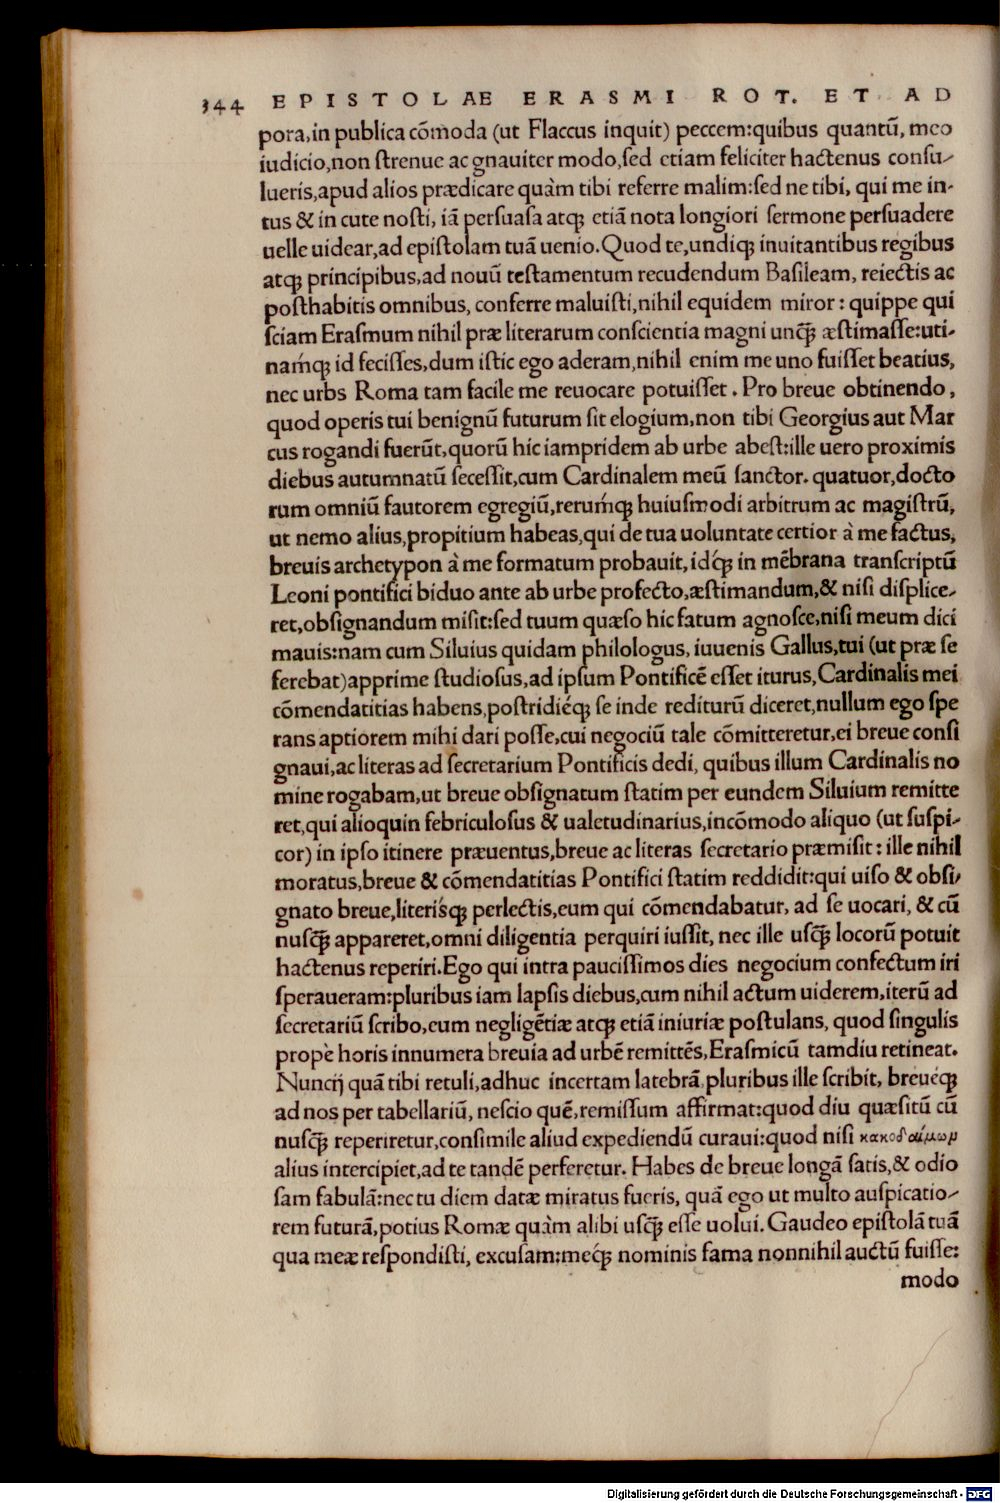 344 EPISTOLAE ERASMI ROT. ET AD
pora,in publica cōmoda (ut Flaccus inquit) peccem:quibus quantū, meo
iudicio,non ſtrenue ac gnauiter modo,ſed etiam feliciter hactenus conſu-
lueris,apud alios prædicare quàm tibi referre malim:ſed ne tibi, qui me in-
tus & in cute noſti, iā perſuaſa atqꝫ etiā nota longiori ſermone perſuadere
uelle uidear,ad epiſtolam tuā uenio.Quod te,undiqꝫ inuitantibus regibus
atqꝫ principibus,ad nouū teſtamentum recudendum Baſileam, reiectis ac
poſthabitis omnibus, conferre maluiſti,nihil equidem miror: quippe qui
ſciam Eraſmum nihil præ literarum conſcientia magni unqꝫ̄ æſtimaſſe:uti-
namqꝫ́ id feciſſes,dum iſtic ego aderam,nihil enim me uno fuiſſet beatius,
nec urbs Roma tam facile me reuocare potuiſſet. Pro breue obtinendo,
quod operis tui benignū futurum ſit elogium,non tibi Georgius aut Mar
cus rogandi fuerūt,quorū hic iampridem ab urbe abeſt:ille uero proximis
diebus autumnatū ſeceſſit,cum Cardinalem meū ſanctor. quatuor,docto
rum omniū fautorem egregiū,rerumqꝫ́ huiuſmodi arbitrum ac magiſtrū,
ut nemo alius,propitium habeas,qui de tua uoluntate certior à me factus,
breuis archetypon à me formatum probauit, idqꝫ́ in mēbrana tranſcriptū
Leoni pontifici biduo ante ab urbe profecto,æſtimandum,& niſi diſplice-
ret,obſignandum miſit:ſed tuum quæſo hic fatum agnoſce,niſi meum dici
mauis:nam cum Siluius quidam philologus, iuuenis Gallus,tui (ut præ ſe
ferebat)apprime ſtudioſus,ad ipſum Pontificē eſſet iturus,Cardinalis mei
cōmendatitias habens,poſtridiéqꝫ ſe inde rediturū diceret,nullum ego ſpe
rans aptiorem mihi dari poſſe,cui negociū tale cōmitteretur,ei breue conſi
gnaui,ac literas ad ſecretarium Pontificis dedi, quibus illum Cardinalis no
mine rogabam,ut breue obſignatum ſtatim per eundem Siluium remitte
ret,qui alioquin febriculoſus & ualetudinarius,incōmodo aliquo (ut ſuſpi-
cor) in ipſo itinere præuentus,breue ac literas ſecretario præmiſit: ille nihil
moratus,breue & cōmendatitias Pontifici ſtatim reddidit:qui uiſo & obſi-
gnato breue,literisqꝫ́ perlectis,eum qui cōmendabatur, ad ſe uocari, & cū
nuſqꝫ̄ appareret,omni diligentia perquiri iuſſit, nec ille uſqꝫ̄ locorū potuit
hactenus reperiri.Ego qui intra pauciſſimos dies negocium confectum iri
ſperaueram:pluribus iam lapſis diebus,cum nihil actum uiderem,iterū ad
ſecretariū ſcribo,eum negligētiæ atqꝫ etiā iniuriæ poſtulans, quod ſingulis
propè horis innumera breuia ad urbē remittēs,Eraſmicū tamdiu retineat.
Nuncij quā tibi retuli,adhuc incertam latebrā pluribus ille ſcribit, breuéqꝫ
ad nos per tabellariū, neſcio quē,remiſſum affirmat:quod diu quæſitū cū
nuſqꝫ̄ reperiretur,conſimile aliud expediendū curaui:quod niſi κακοδαίμωμ
alius intercipiet,ad te tandē perferetur. Habes de breue longā ſatis,& odio
ſam fabulā:nec tu diem datæ miratus fueris, quā ego ut multo auſpicatio-
rem futurā,potius Romæ quàm alibi uſqꝫ̄ eſſe uolui. Gaudeo epiſtolā tuā
qua meæ reſpondiſti, excuſam:meqꝫ́ nominis fama nonnihil auctū fuiſſe:
modo
Digitalisierung gefördert durch die Deutsche Forschungsgemeinschaft - DFG